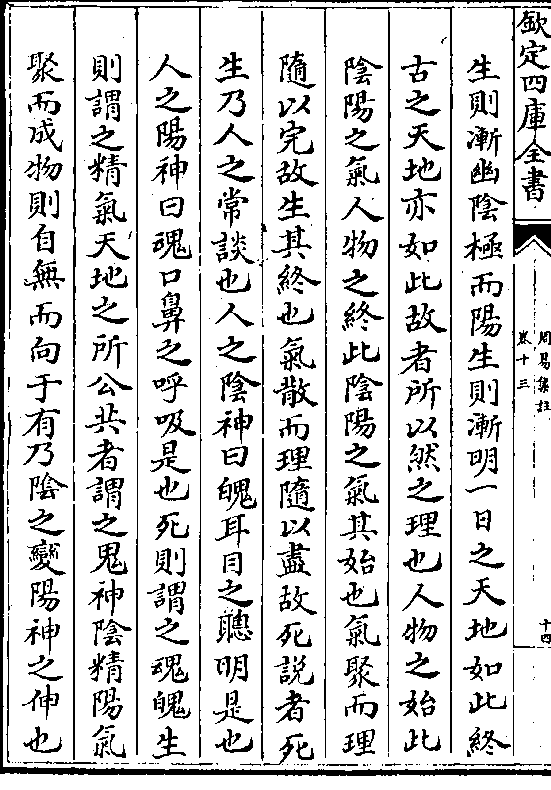 欽定四庫全書
周易集註
卷十三
十四
生則漸幽陰極而陽生則漸明一日之天地如此終
古之天地亦如此故者所以然之理也人物之始此
陰陽之氣人物之終此陰陽之氣其始也氣聚而理
隨以完故生其終也氣散而理隨以盡故死説者死
生乃人之常談也人之陰神曰魄耳目之聰明是也
人之陽神曰魂口鼻之呼吸是也死則謂之魂魄生
則謂之精氣天地之所公共者謂之鬼神陰精陽氣
聚而成物則自無而向于有乃陰之變陽神之伸也